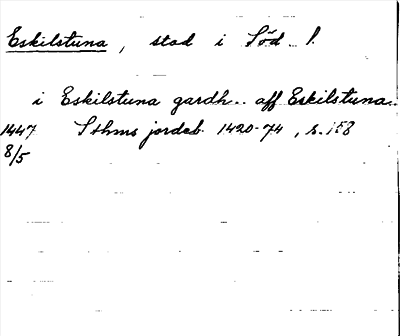 Eskilstuna, stad i Söd. l.
i Eskilstuna gardh.. aff Eskilstuna..
1447 Sthms jordeb. 1420-74, s. 158
8/5